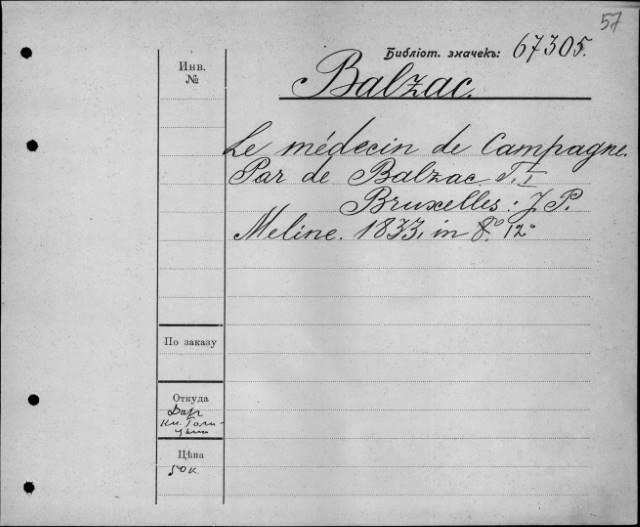 57
Библіот. значекъ: 67305.
Инв.
№
Balzac.
Le médecin de Campagne.
Par de Balzac T. I
Bruxelles: J. P.
Meline. 1833, in 8° 12°
По заказу
Откуда
Дар
кн. Голи-
цына
Цѣна
50 к